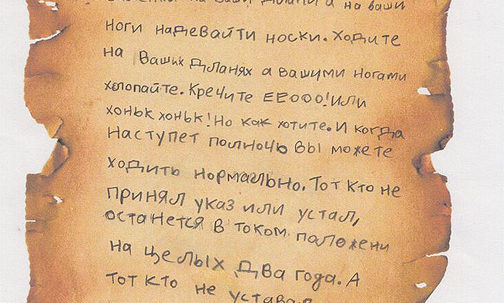 на ваши дилани а на ваши
ноги надевайти носки. Ходите
на Ваших Диланях а вашими ногами
хлопайте. Кречите ЕЕООО! или
хоньк хоньк! Но как хотите. И когда
наступет полночь вы можете
ходить нормально. Тот кто не
принял указ или устал,
останется в таком положени
на целых два года. А
тот кто не уставал